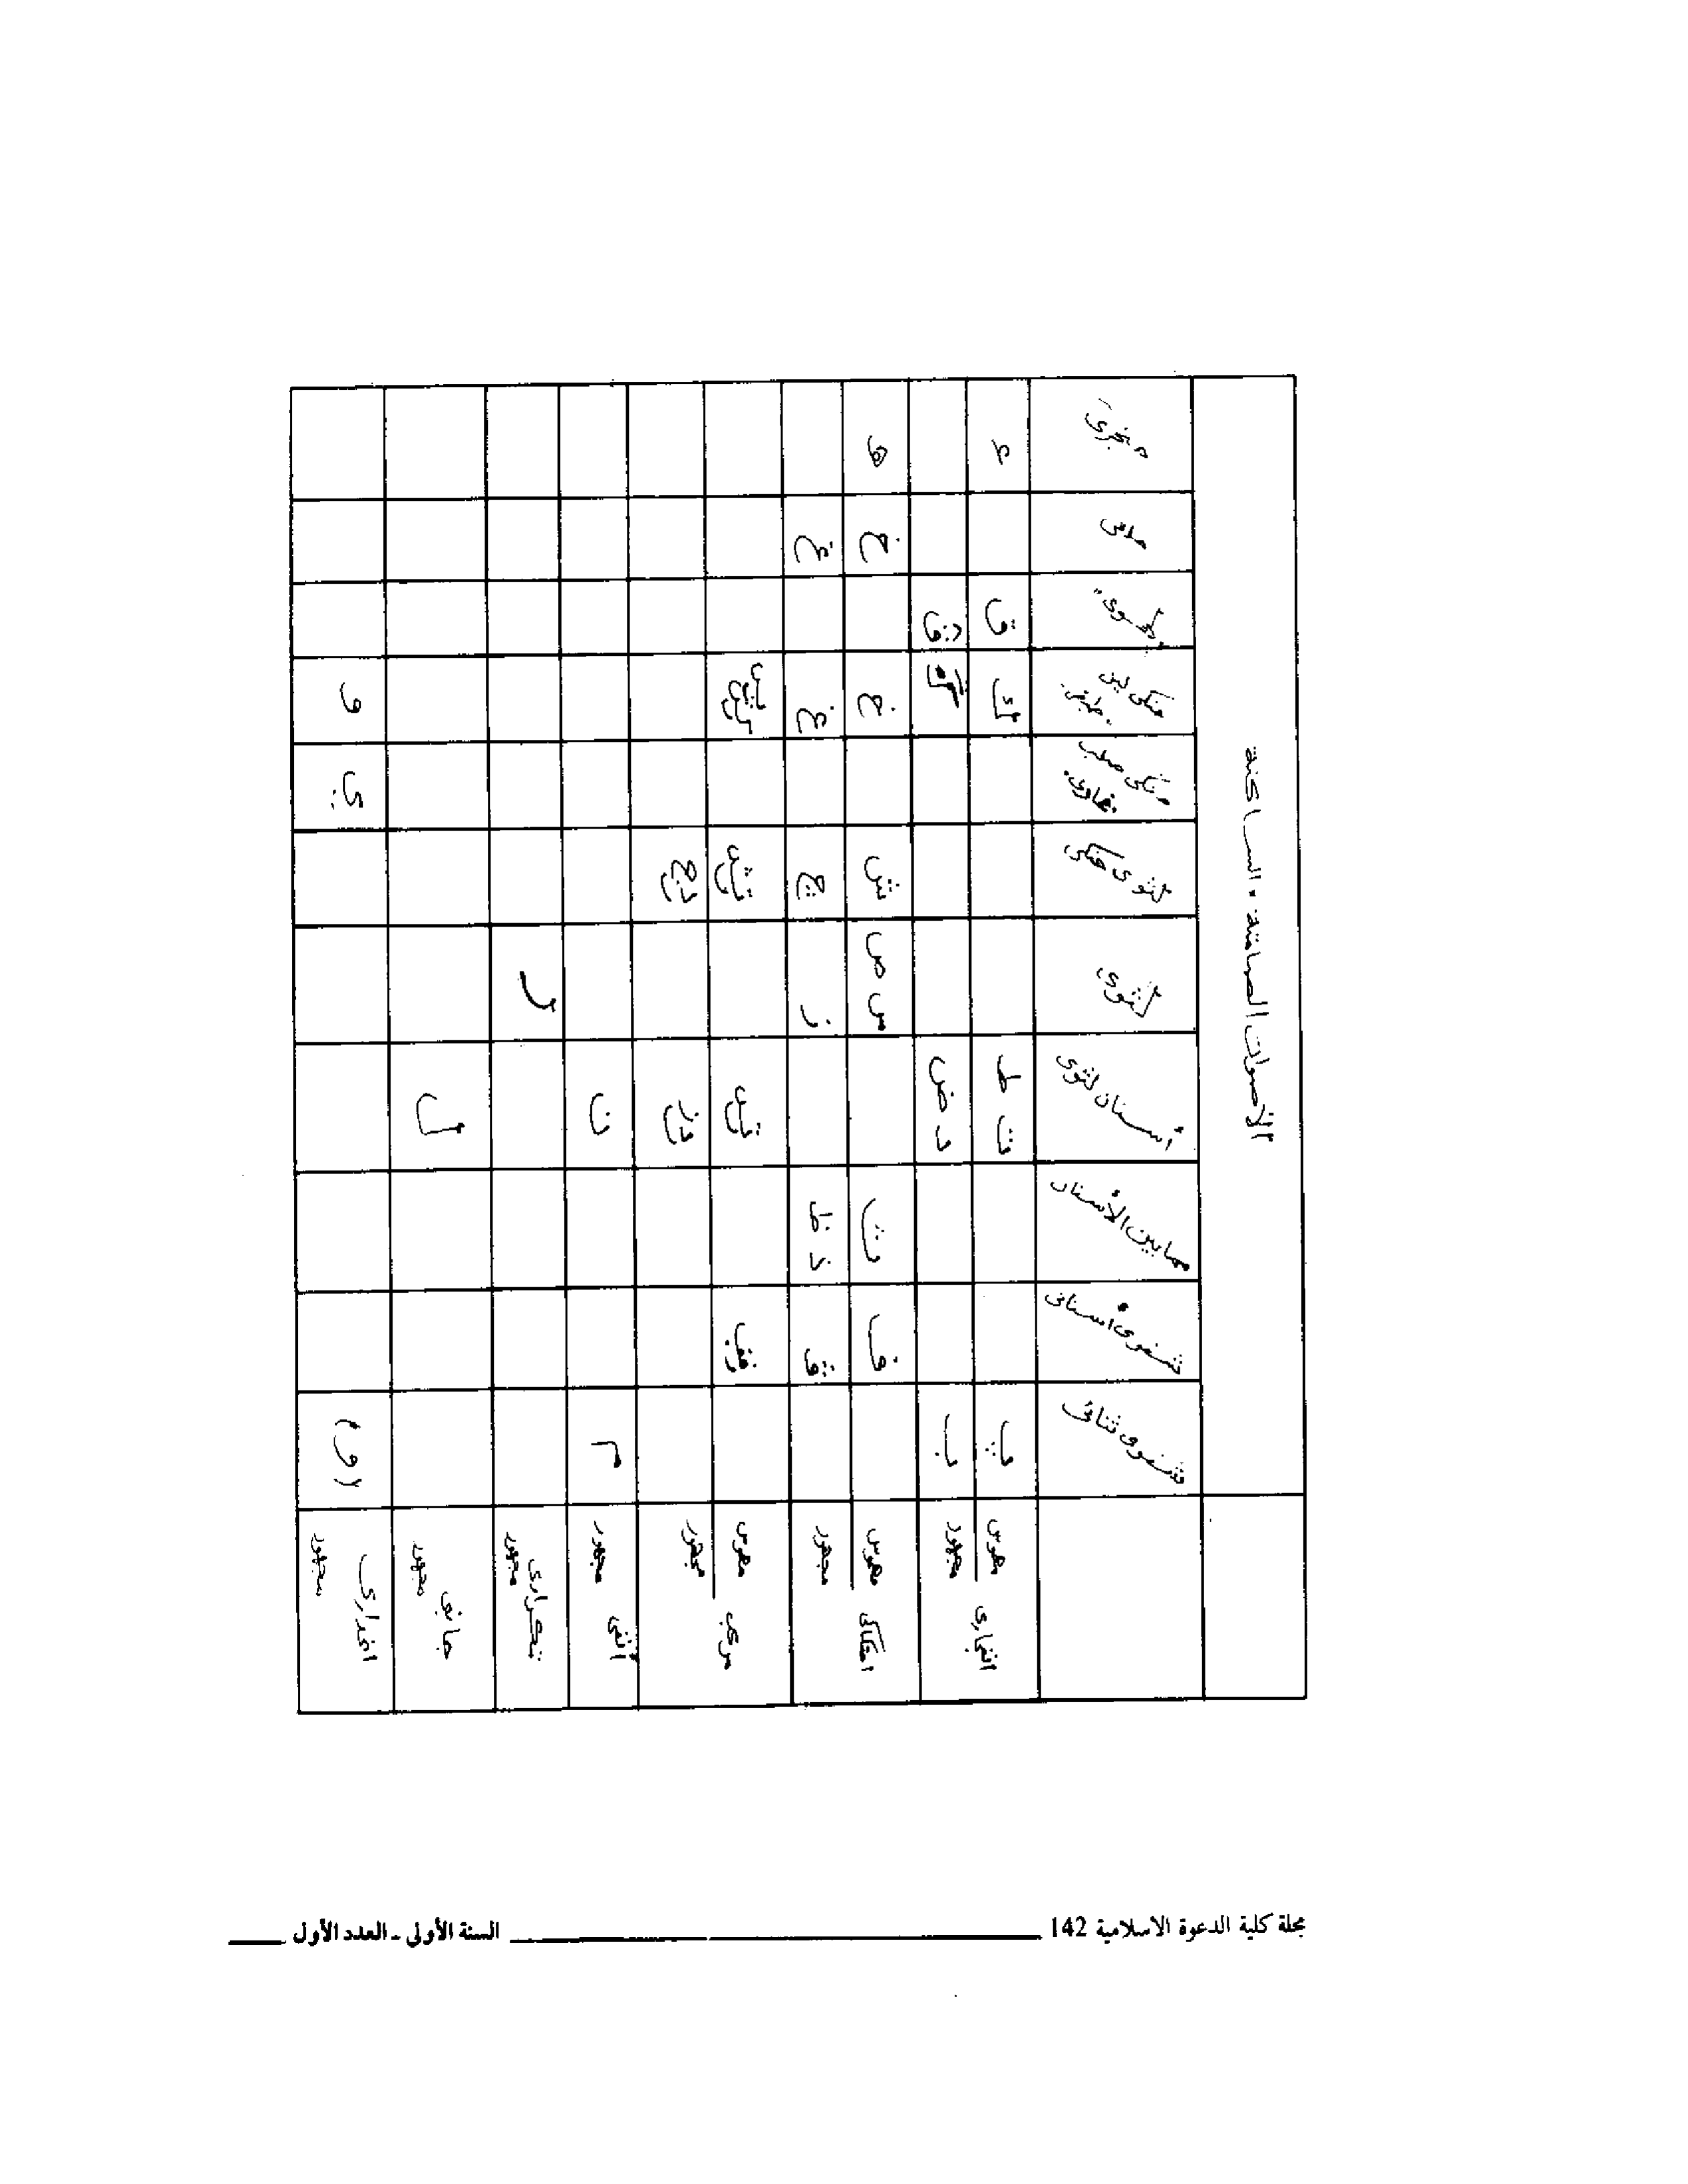 الأصوات الصامتة "الساكنة
شفوى ثنائى
شفوى أسنانى
مابين الأسنان
أسنان لثوى
لثوى
لثوى حنكى
حنكى صلب "غارى"
حنكى لين "طبقى"
"لهوى"
حلقى
حنجرى
انفجارى
مهموس پ ت ط ك ق ء
مجهور ب د ض
احتكاكى
مهموس ف ث س ص ش خ خ ه
مجهور ڤ ذ ظ ز ج غ غ
مركب
مهموس
مجهور
أنفى مجهور م ن
تكرارى مجهور ر
جانبى مجهور ل
انحدارى مجهور (و) ي و
مجلة كلية الدعوة الاسلامية 142 السنة الأولى - العدد الأول